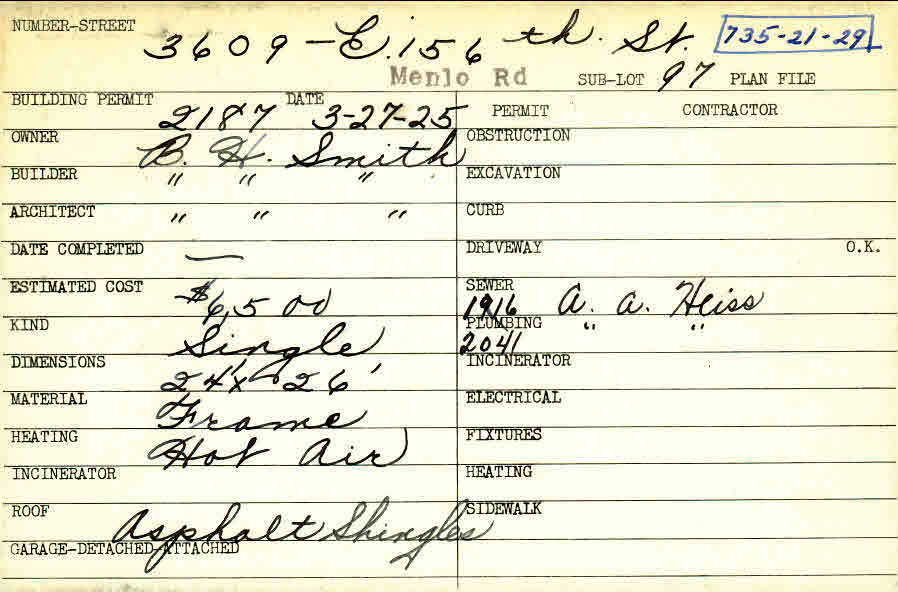 NUMBER-STREET 3609 - E. 156th. St. 735-21-29
Menlo Rd SUB-LOT 97 PLAN FILE
BUILDING PERMIT 2187 DATE 3-27-25
OWNER B. H. Smith
BUILDER " " "
ARCHITECT " " "
DATE COMPLETED —
ESTIMATED COST $6,500
KIND Single
DIMENSIONS 24' x 26'
MATERIAL Frame
HEATING Hot Air
INCINERATOR
ROOF Asphalt Shingles
GARAGE-DETACHED-ATTACHED
PERMIT CONTRACTOR
OBSTRUCTION
EXCAVATION
CURB
DRIVEWAY O.K.
SEWER
1916 A. A. Heiss
PLUMBING " "
2041
INCINERATOR
ELECTRICAL
FIXTURES
HEATING
SIDEWALK